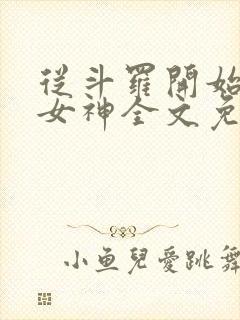 從斗羅開始
女神全文免
小鱼兒愛跳舞